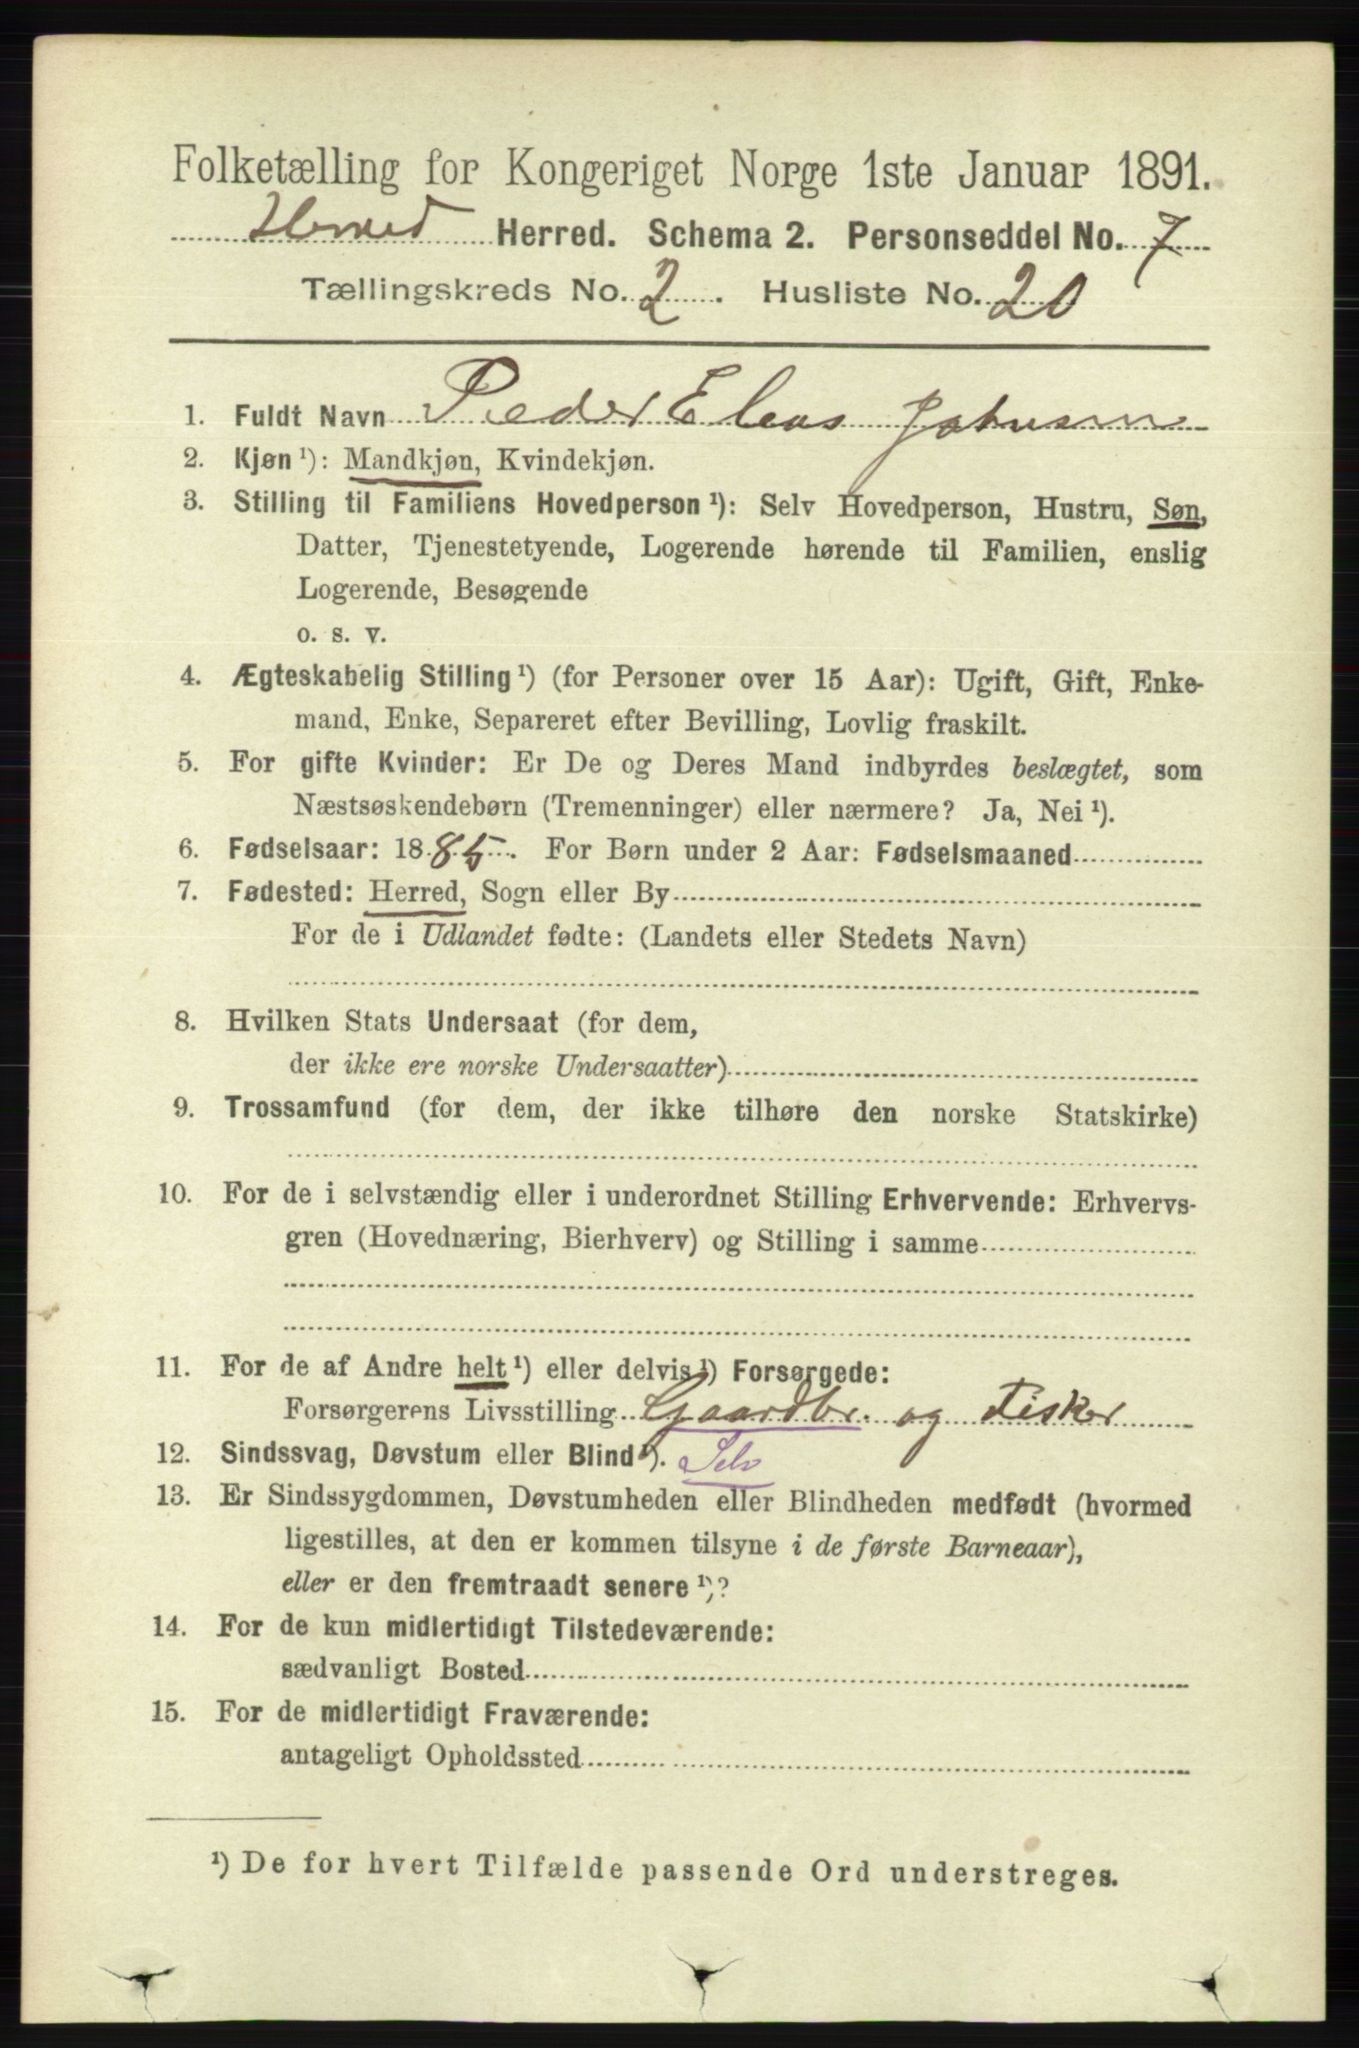 Folketælling for Kongeriget Norge 1ste Januar 1891.
Herred. Schema 2. Personseddel No. 7
Tællingskreds No. 2. Husliste No. 20
1. Fuldt Navn Peder Eleas Johnsen
2. Kjøn ¹): Mandkjøn, Kvindekjøn.
3. Stilling til Familiens Hovedperson ¹): Selv Hovedperson, Hustru, Søn,
Datter, Tjenestetyende, Logerende hørende til Familien, enslig
Logerende, Besøgende
o. s. v.
4. Ægteskabelig Stilling ¹) (for Personer over 15 Aar): Ugift, Gift, Enke-
mand, Enke, Separeret efter Bevilling, Lovlig fraskilt.
5. For gifte Kvinder: Er De og Deres Mand indbyrdes beslægtet, som
Næstsøskendebørn (Tremenninger) eller nærmere? Ja, Nei ¹).
6. Fødselsaar: 1885. For Børn under 2 Aar: Fødselsmaaned
7. Fødested: Herred, Sogn eller By
For de i Udlandet fødte: (Landets eller Stedets Navn)
8. Hvilken Stats Undersaat (for dem,
der ikke ere norske Undersaatter)
9. Trossamfund (for dem, der ikke tilhøre den norske Statskirke)
10. For de i selvstændig eller i underordnet Stilling Erhvervende: Erhvervs-
gren (Hovednæring, Bierhverv) og Stilling i samme
11. For de af Andre helt ¹) eller delvis ¹) Forsørgede:
Forsørgerens Livsstilling Gaardbr. og Fisker
12. Sindssvag, Døvstum eller Blind ¹). Selv
13. Er Sindssygdommen, Døvstumheden eller Blindheden medfødt (hvormed
ligestilles, at den er kommen tilsyne i de første Barneaar),
eller er den fremtraadt senere ¹)?
14. For de kun midlertidigt Tilstedeværende:
sædvanligt Bosted
15. For de midlertidigt Fraværende:
antageligt Opholdssted
¹) De for hvert Tilfælde passende Ord understreges.